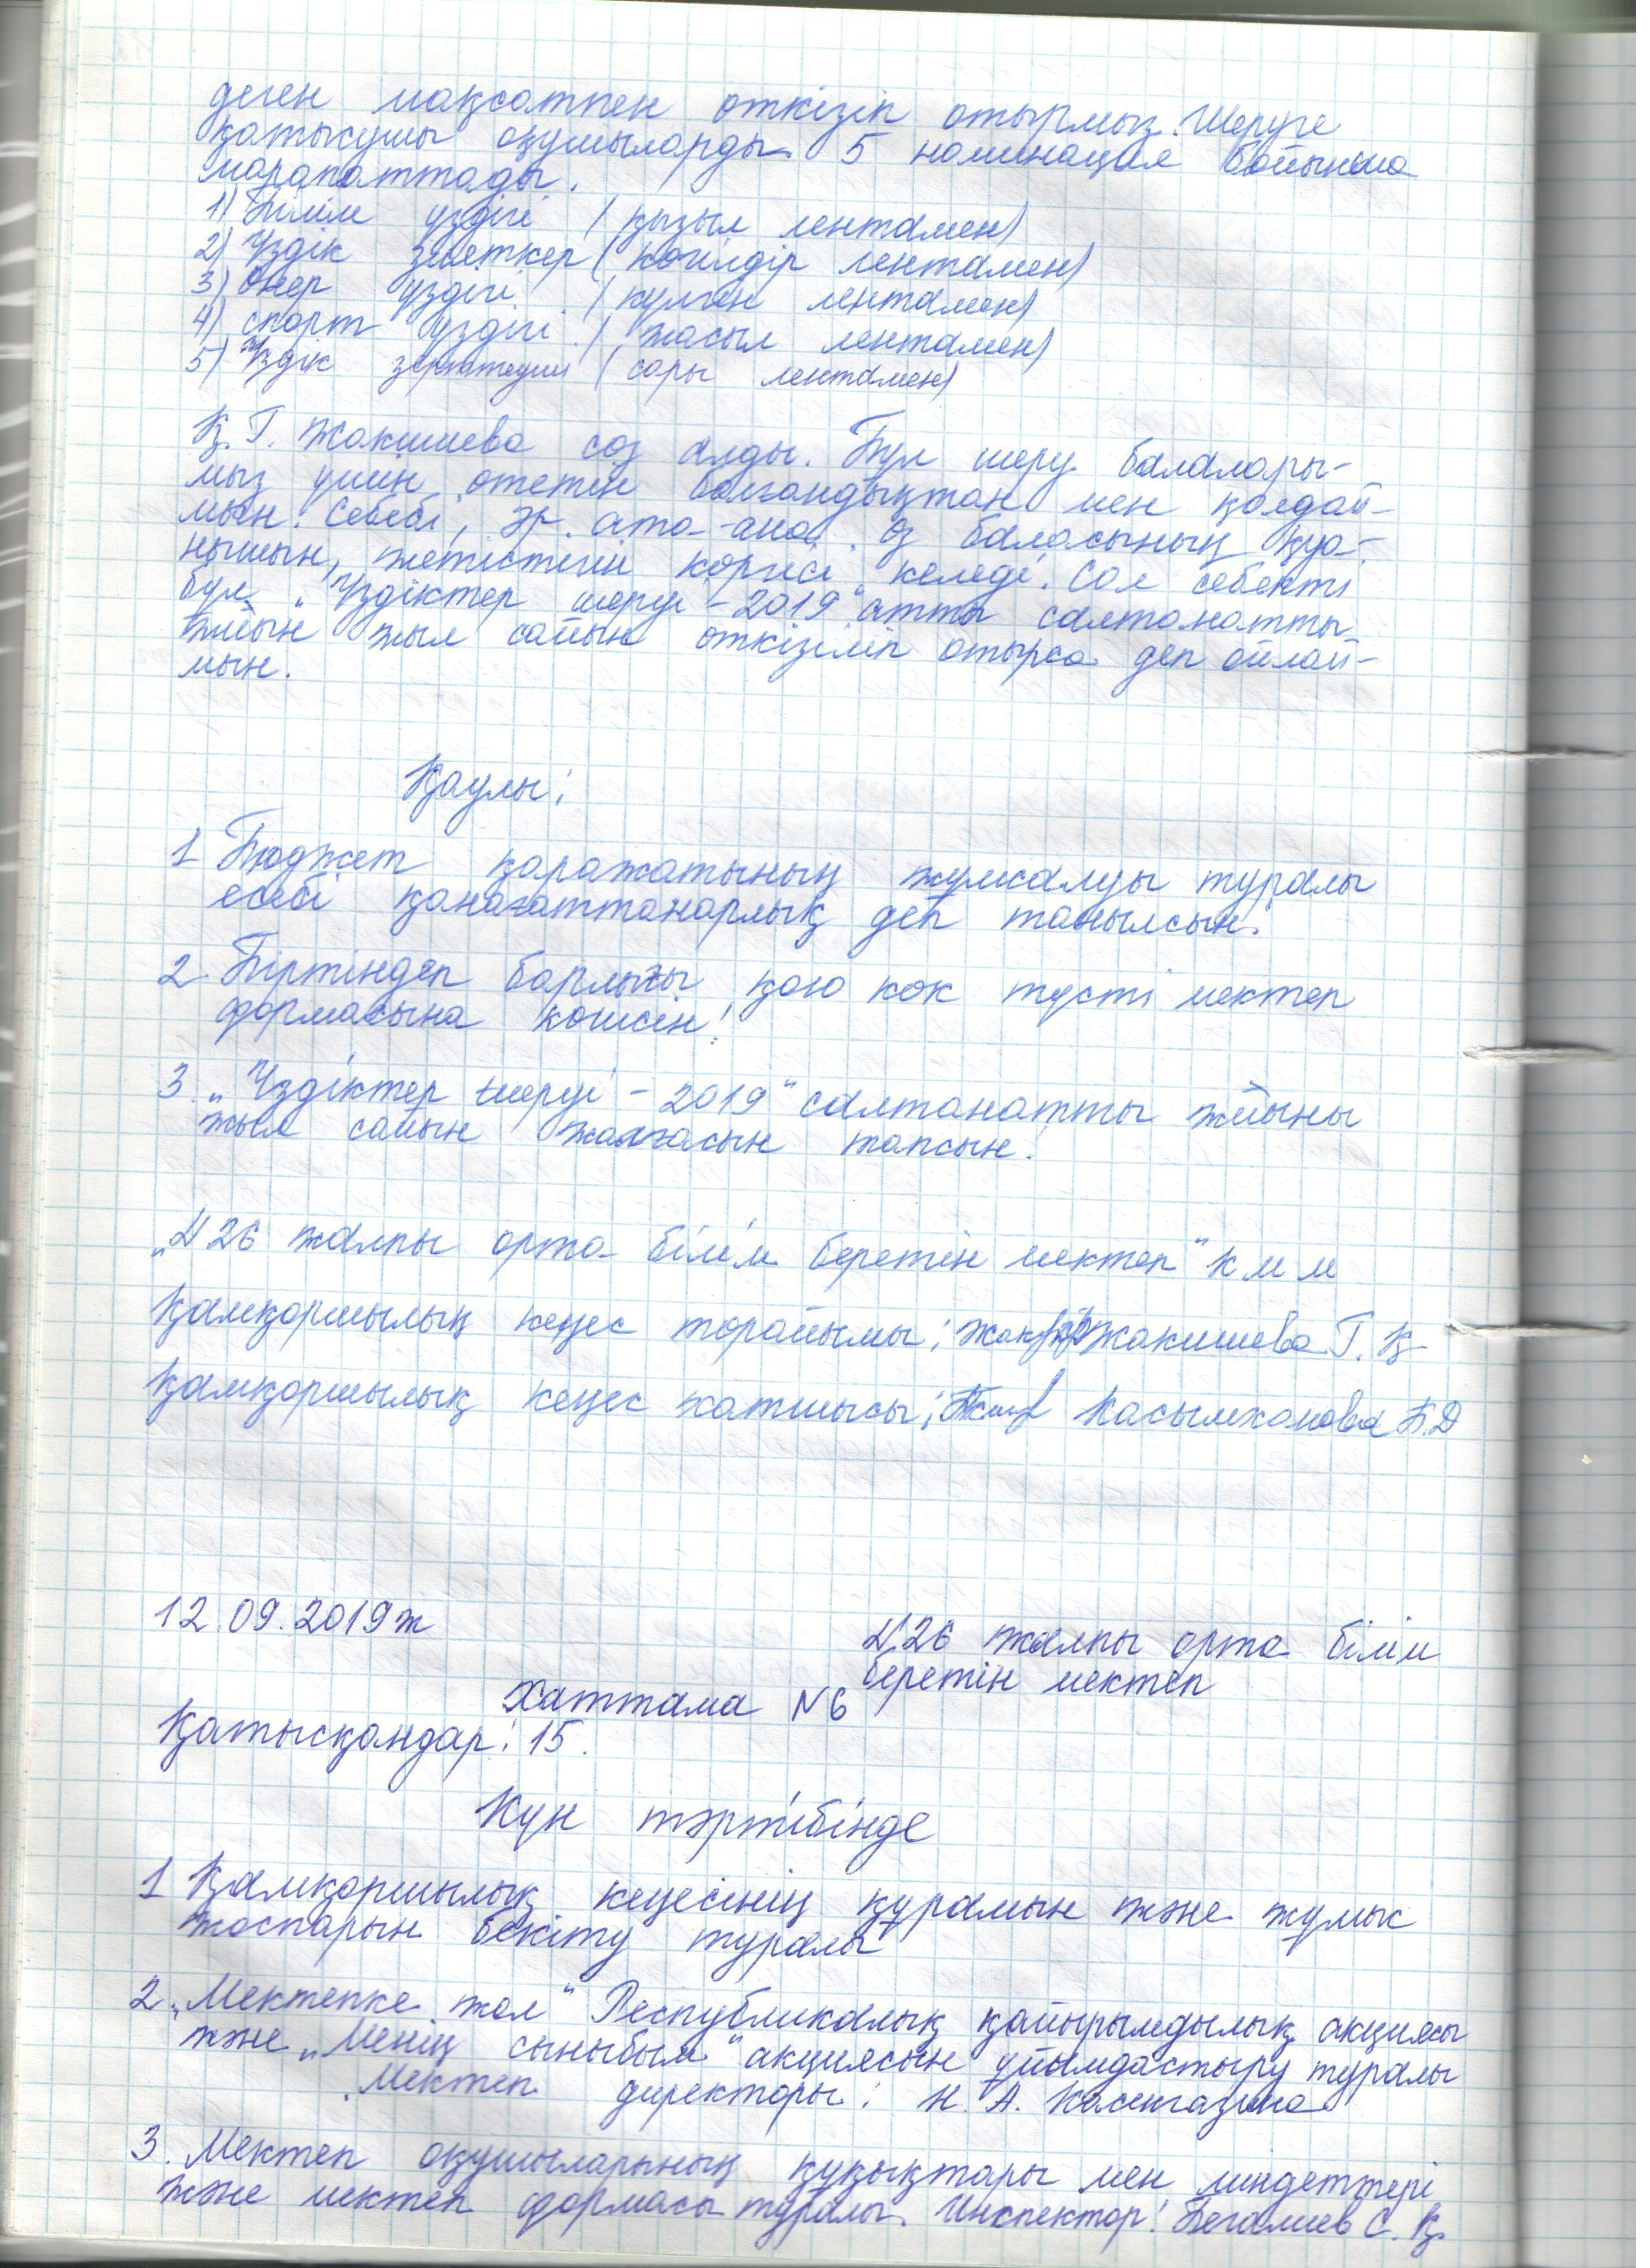 деген мақсатпен өткізіп отырмыз. Шеруге
қатысушы оқушыларды 5 номинация бойынша
марапаттады.
1) Білім үздігі (қызыл лентамен)
2) Үздік зияткер (көгілдір лентамен)
3) Өнер үздігі (күлгін лентамен)
4) спорт үздігі (жасыл лентамен)
5) Үздік зерттеуші (сары лентамен)
Қ. Г. Жакишева сөз алды. Бұл шеру балалары-
мыз үшін өтетін болғандықтан мен қолдай-
мын. Себебі, әр ата-ана өз баласының қуа-
нышын, жетістігін көргісі келеді. Сол себепті
бұл „Үздіктер шеруі - 2019" атты салтанатты
жиын жыл сайын өткізіліп отырса деп ойлай-
мын.
Қаулы:
1 Бюджет қаражатының жұмсалуы туралы
есебі қанағаттанарлық деп танылсын.
2 Біртіндеп барлығы қою көк түсті мектеп
формасына көшсін!
3 „Үздіктер шеруі - 2019" салтанатты жиыны
жыл сайын жалғасын тапсын!
„N26 жалпы орта білім беретін мектеп" КММ
Қамқоршылық кеңес төрайымы: Жакишева Г. Қ
Қамқоршылық кеңес хатшысы: Касымханова Б.Д
12.09.2019ж
N26 жалпы орта білім
беретін мектеп
Хаттама N6
Қатысқандар: 15.
Күн тәртібінде
1 Қамқоршылық кеңесінің құрамын және жұмыс
жоспарын бекіту туралы
2. „Мектепке жол" Республикалық қайырымдылық акциясы
және „Менің сыныбым" акциясын ұйымдастыру туралы
Мектеп директоры: Н. А. Калемгазина
3. Мектеп оқушыларының құқықтары мен міндеттері
және мектеп формасы туралы. Инспектор: Бегалиев С. Қ.